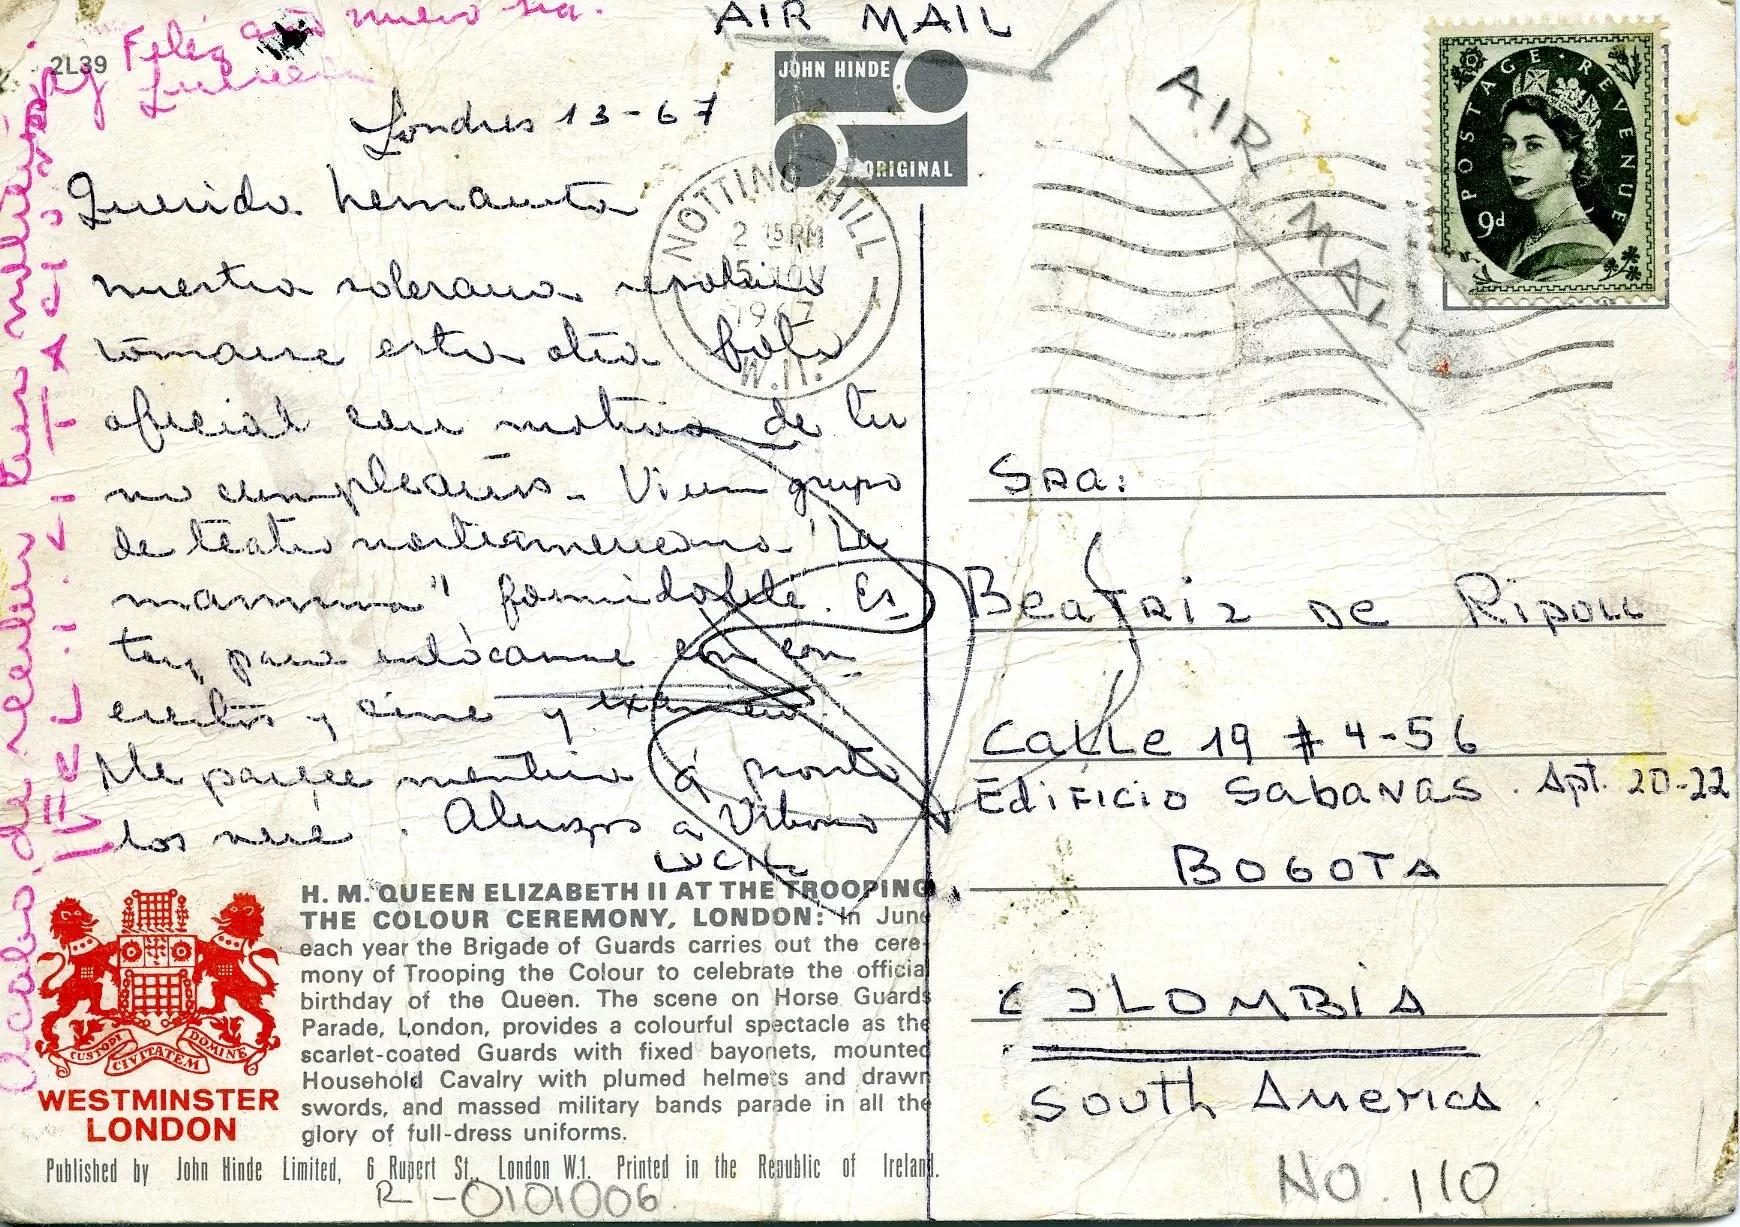 AIR MAIL
Feliz año nuevo
2L39
Londres 13-67
JOHN HINDE
ORIGINAL
AIR MAIL
POSTAGE REVENUE
9d
NOTTING HILL
2 15 PM
5 NOV
1967
W.11.
Querida hermanita
nuestra soberana
tomarse esta otra foto
oficial con motivo de tu
no cumpleaños. Vi un grupo
de teatro norteamericano "La
mamma" formidable. Es
toy para enloquecerme con con
ciertos y cine y
Me parece mentira q' pronto
los veré. Abrazos a
LUCH
Acabo de recibir tus
FELICITA
SRA:
BEATRIZ DE RIPOLL
CALLE 19 # 4-56
EDIFICIO SABANAS. Apt. 20-22
BOGOTA
COLOMBIA
SOUTH AMERICA.
H. M. QUEEN ELIZABETH II AT THE TROOPING
THE COLOUR CEREMONY, LONDON: In June
each year the Brigade of Guards carries out the cere-
mony of Trooping the Colour to celebrate the official
birthday of the Queen. The scene on Horse Guards
Parade, London, provides a colourful spectacle as the
scarlet-coated Guards with fixed bayonets, mounted
Household Cavalry with plumed helmets and drawn
swords, and massed military bands parade in all the
glory of full-dress uniforms.
CUSTODI CIVITATEM DOMINE
WESTMINSTER
LONDON
Published by John Hinde Limited, 6 Rupert St., London W.1. Printed in the Republic of Ireland.
R-0101006
NO. 110